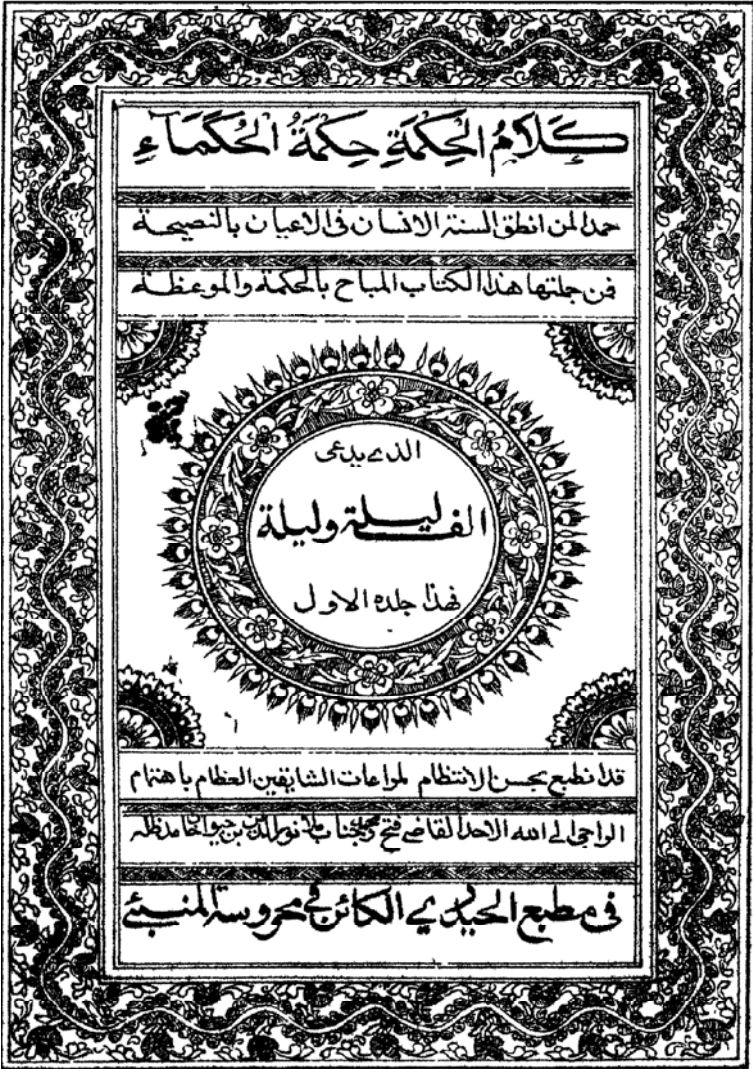 كَلَامُ الْحِكْمَةِ حِكْمَةُ الْحُكَمَآءِ
حمدا لمن انطق السنة الانسان فى الاعيان بالنصيحة
فمن جملتها هذا الكتاب المباح بالحكمة والموعظة
الذے يدعى
الف ليلة وليلة
فهذا جلده الاول
قد انطبع بحسن الانتظام لمراعات الشايقين العظام باهتمام
الراجى الے الله الاحد القاضے فتح محمد جناب نور الدين بن جيواخان دام ظله
فى مطبع الحيدرے الكائن فے محروسة المنبئے